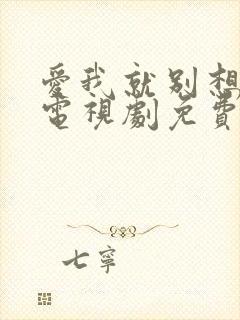 愛我就別想
電視劇免費
七寧